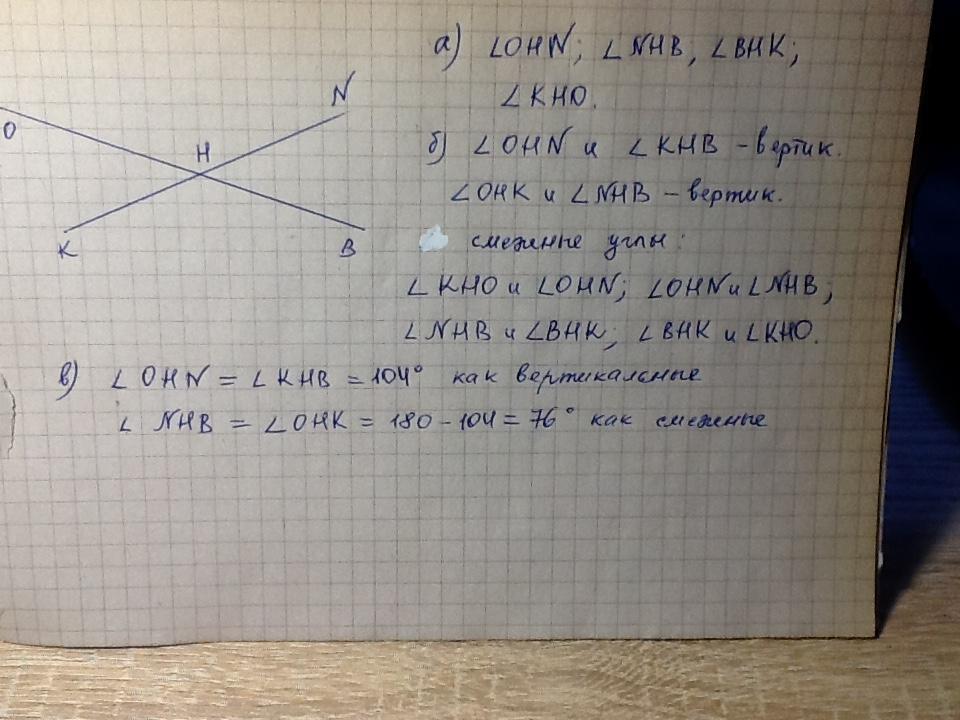 а) ∠OHN; ∠NHB, ∠BHK;
∠KHO.
б) ∠OHN и ∠KHB - вертик.
∠OHK и ∠NHB - вертик.
смежные углы:
∠KHO и ∠OHN; ∠OHN и ∠NHB;
∠NHB и ∠BHK; ∠BHK и ∠KHO.
O
H
N
K
B
в) ∠OHN = ∠KHB = 104° как вертикальные
∠NHB = ∠OHK = 180 - 104 = 76° как смежные